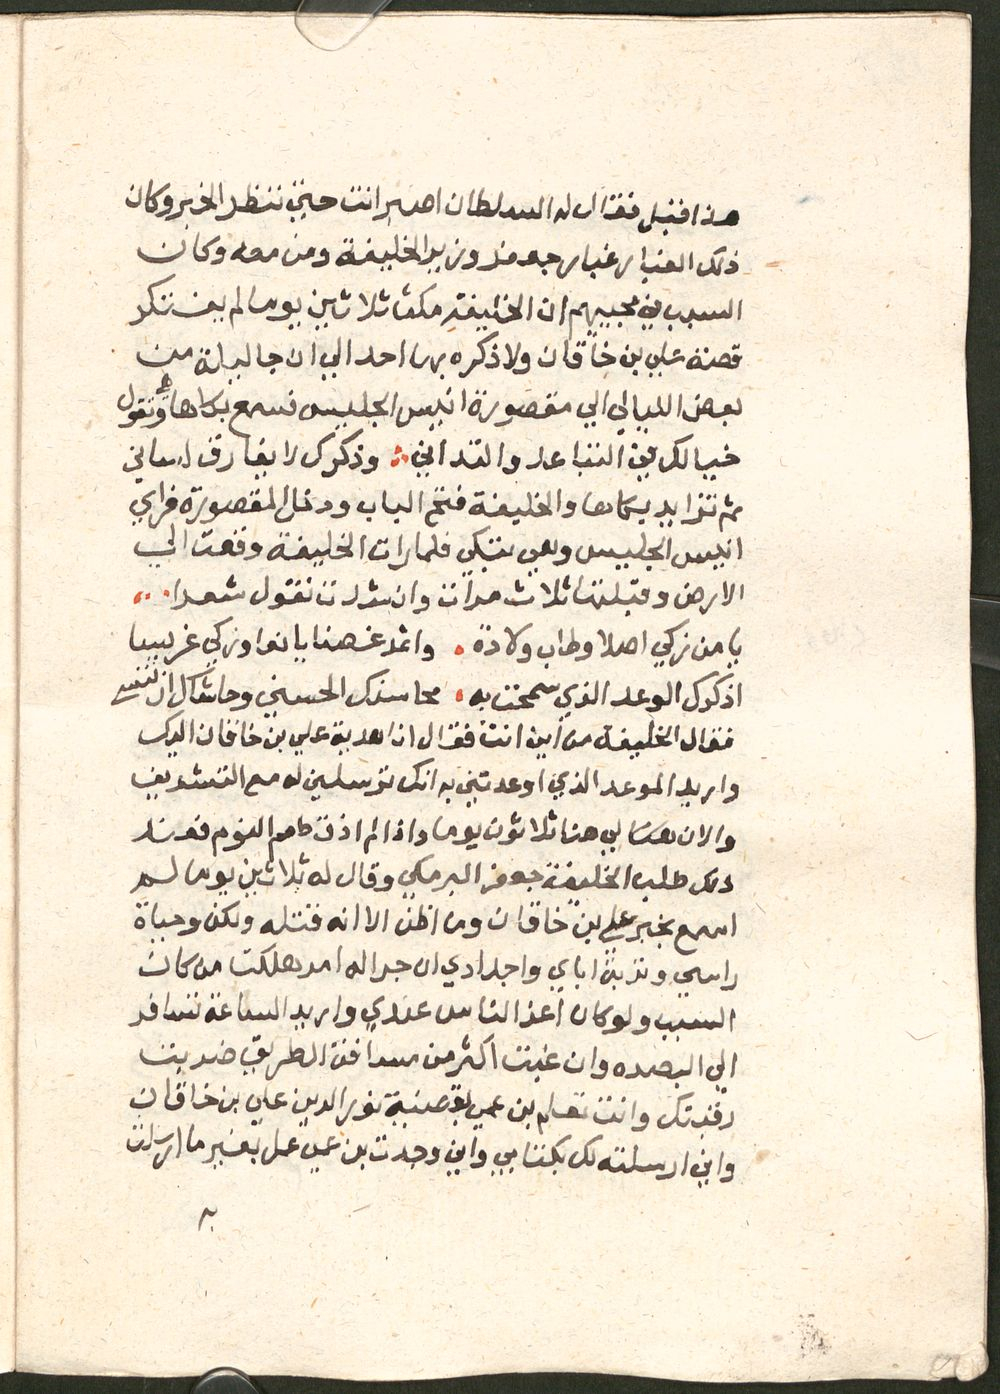 هذا فقبل فقال له السلطان اصبر انت حتي ننظر الخبر وكان
ذلك الغبار غبار جعفر وزير الخليفة ومن معه وكان
السبب في مجيهم ان الخليفة مكث ثلاثين يوما لم يفتكر
قصة علي بن خاقان ولا ذكره بها احد الي ان جا ليلة من
بعض الليالي الي مقصورة انيس الجليس فسمع بكاها وهي تقول
خيالك في التباعد والتداني وذكرك لا يفارق لساني
ثم تزايد بكاها والخليفة فتح الباب ودخل المقصورة فراي
انيس الجليس وهي تبكي فلما رات الخليفة وقعت الي
الارض وقبلتها ثلاث مرات وانشدت تقول شعرا
يا من زكي اصلا وطاب ولادة واثمر غصنا يانعا وزكي غريبا
اذكرك الوعد الذي سمحت به محاسنك الحسني وحاشاك ان تنسي
فقال الخليفة من اين انت فقال انا هدية علي بن خاقان اليك
واريد الموعد الذي اوعدتني به انك ترسلين له مع التشريف
والان هنا لي هنا ثلاثون يوما واذا لم اذق طعم النوم فعند
ذلك طلب الخليفة جعفر البرمكي وقال له ثلاثين يوما لم
اسمع بخبر علي بن خاقان وما اظن الا انه قتله ولكن وحياة
راسي وتربة اباي واجدادي ان جرا له امر هلكت من كان
السبب ولو كان اعز الناس عندي واريد الساعة تسافر
الي البصره وان غبت اكثر من مسافة الطريق ضربت
رقبتك وانت تعلم بن عمي بقضية نور الدين علي بن خاقان
واني ارسلته لك بكتابي واني وجدت بن عمي عمل بغير ما ارسلت
به